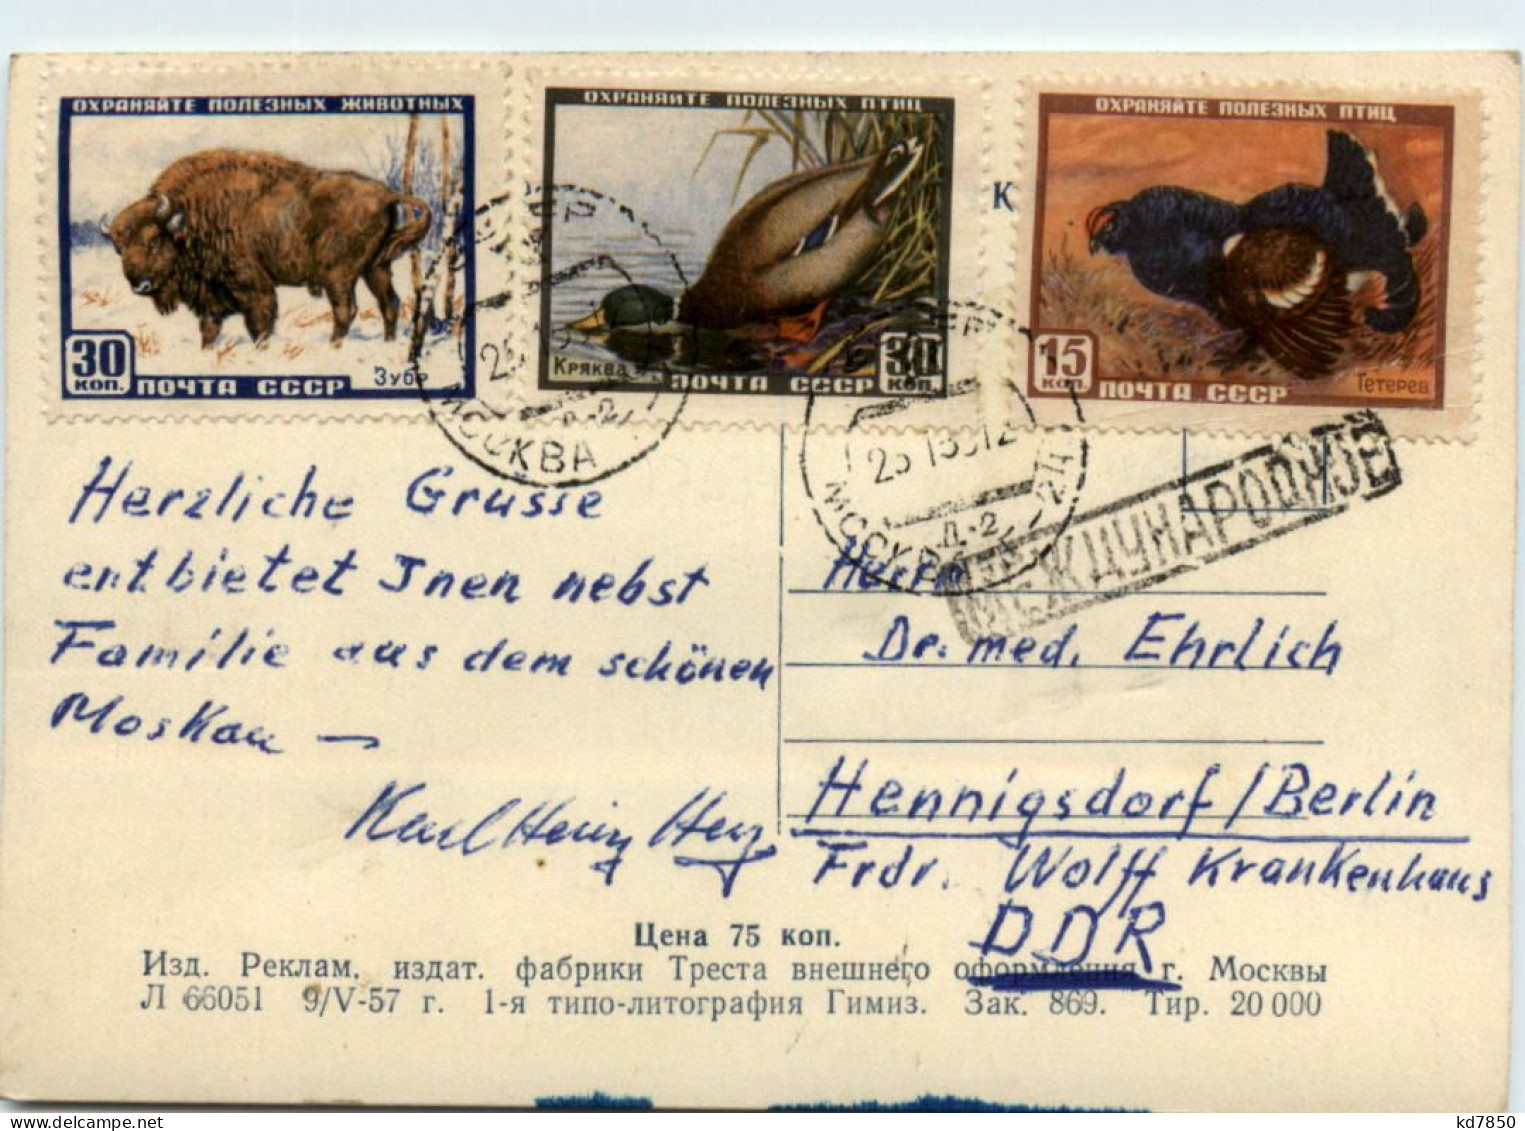 ОХРАНЯЙТЕ ПОЛЕЗНЫХ ЖИВОТНЫХ
30 КОП. ПОЧТА СССР
Зубр
ОХРАНЯЙТЕ ПОЛЕЗНЫХ ПТИЦ
Кряква
ПОЧТА СССР 30 КОП.
К
ОХРАНЯЙТЕ ПОЛЕЗНЫХ ПТИЦ
15 КОП. ПОЧТА СССР
Тетерев
МОСКВА
Д-2
МОСКВА
Д-2
МЕЖДУНАРОДНОЕ
Herzliche Grusse
entbietet Jnen nebst
Familie aus dem schönen
Moskau —
Karl Heinz
Herrn
Dr. med. Ehrlich
Hennigsdorf/Berlin
Frdr. Wolff Krankenhaus
DDR
Цена 75 коп.
Изд. Реклам. издат. фабрики Треста внешнего оформления г. Москвы
Л 66051 9/V-57 г. 1-я типо-литография Гимиз. Зак. 869. Тир. 20 000
kd7850